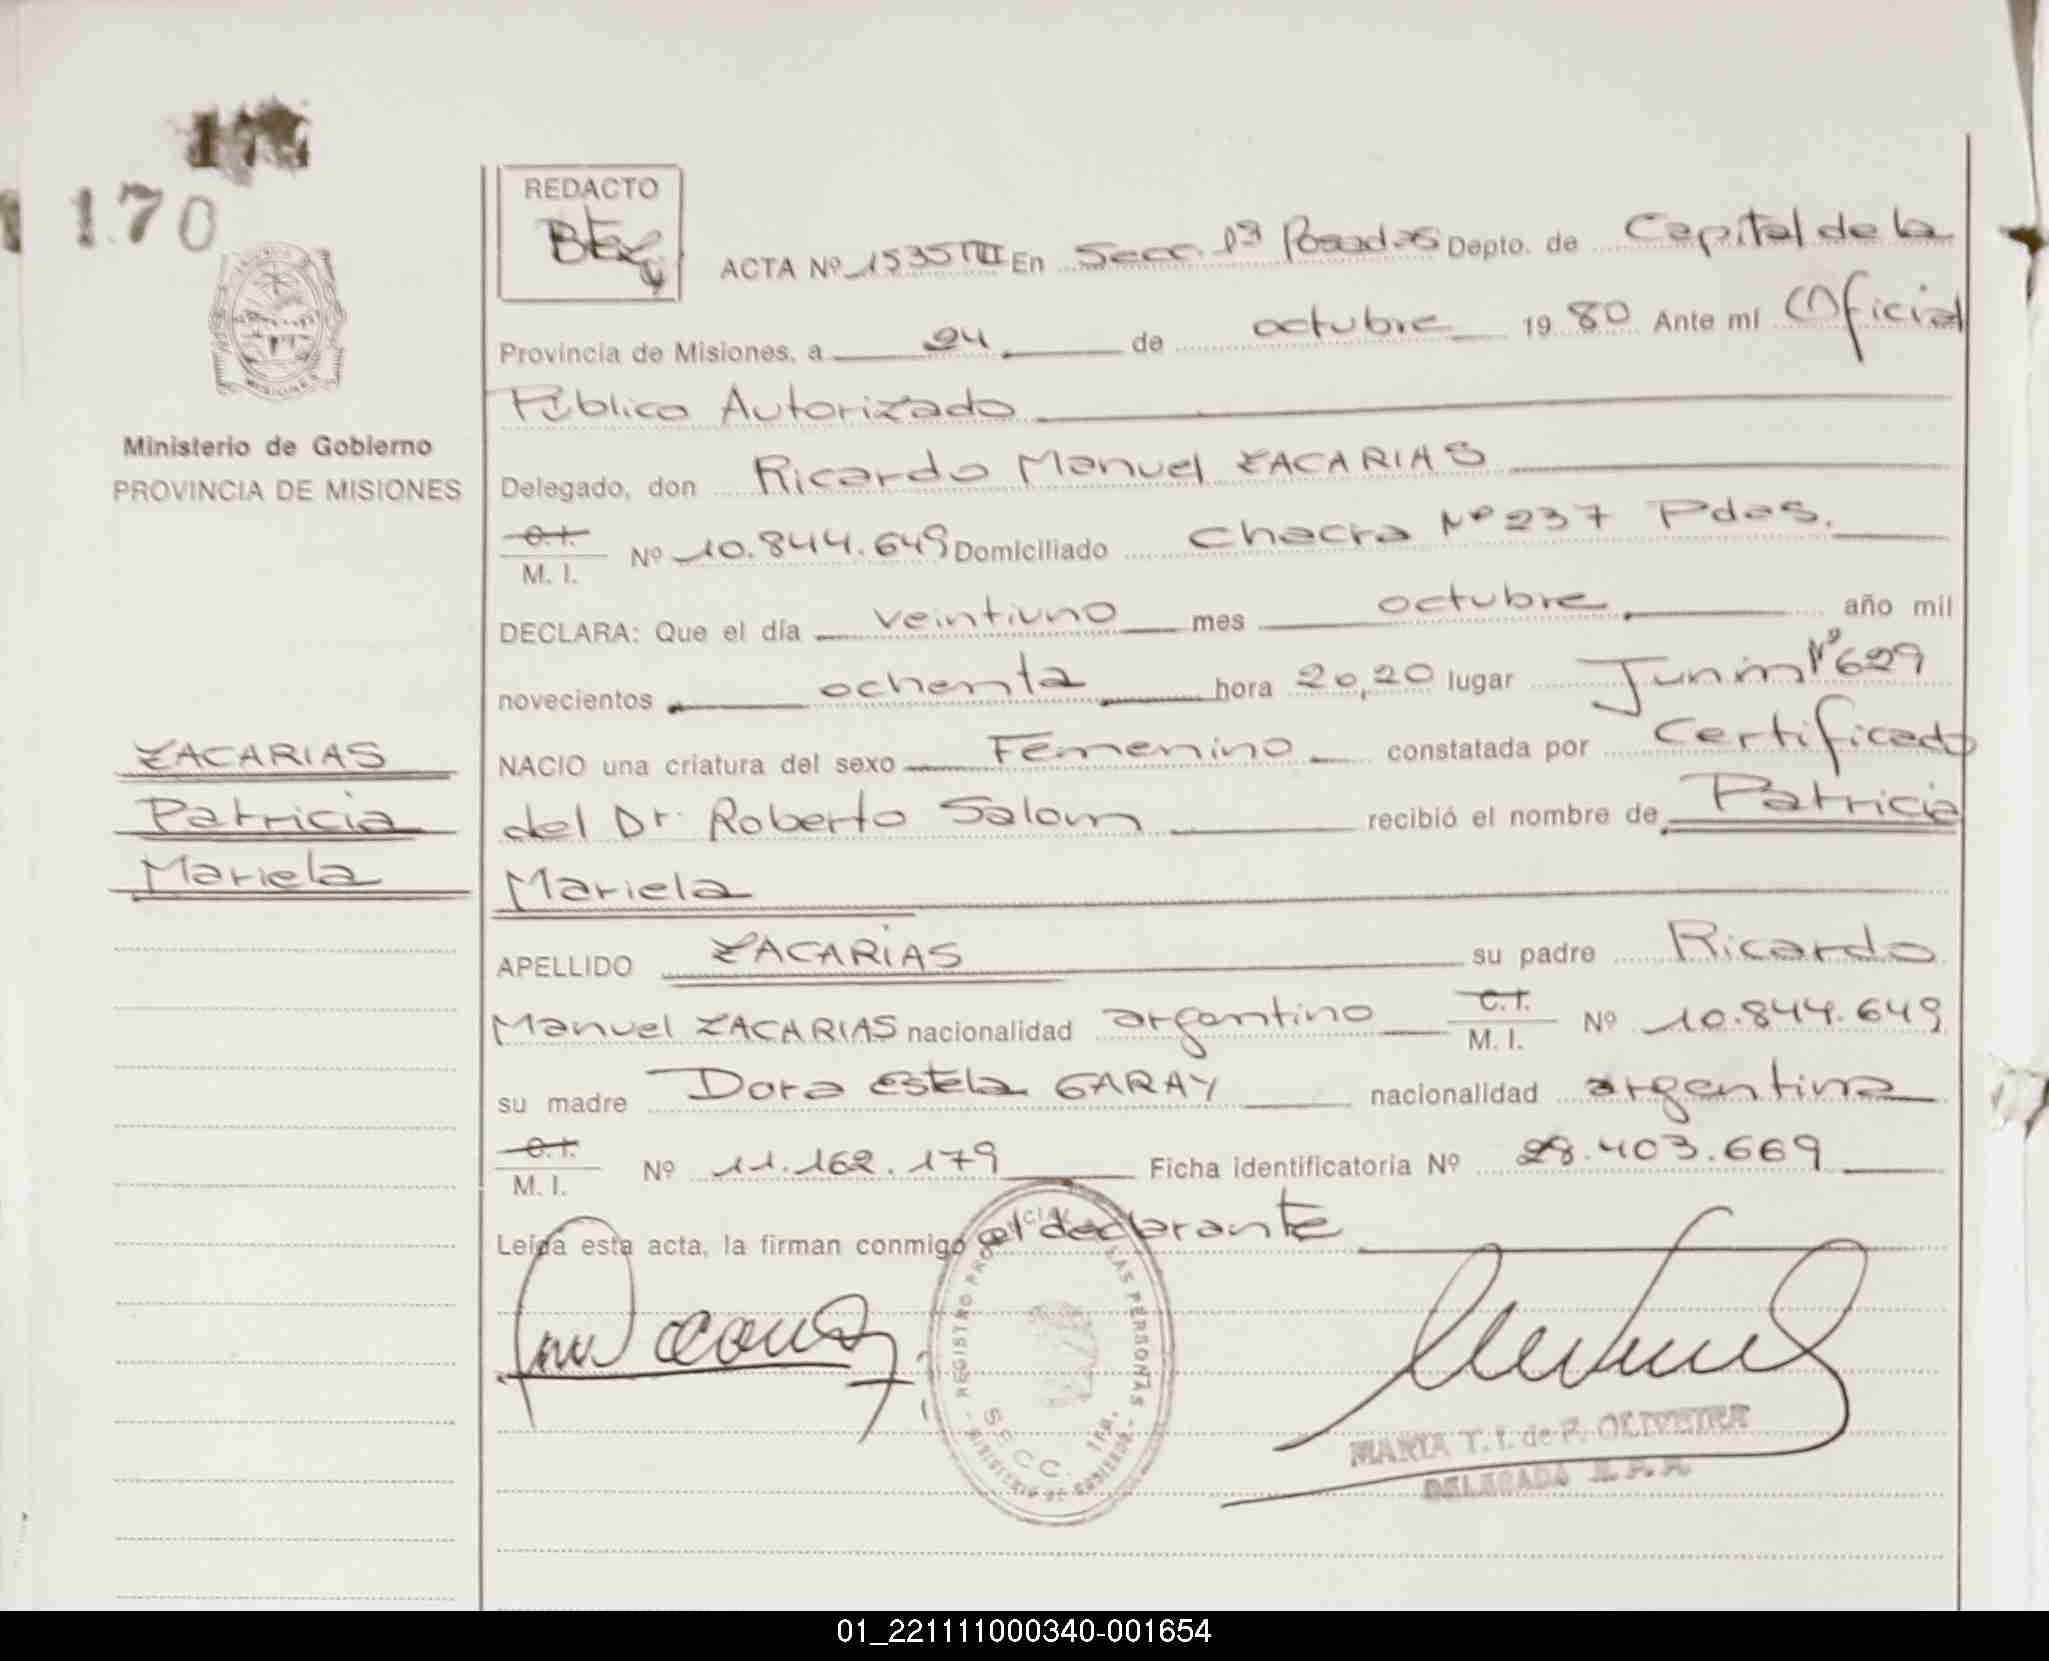 170
REDACTO
ACTA Nº 1535 III En Secc. 1ª Posadas Depto. de Capital de la
Provincia de Misiones, a 24 de octubre 19 80 Ante mí Oficial
Público Autorizado
Ministerio de Gobierno
PROVINCIA DE MISIONES
Delegado, don Ricardo Manuel ZACARIAS
C.I.
M. I. Nº 10.844.649 Domiciliado Chacra Nº 237 Pdas.
DECLARA: Que el día veintiuno mes octubre año mil
novecientos ochenta hora 20,20 lugar Junin Nº 629
NACIO una criatura del sexo Femenino constatada por Certificado
del Dr. Roberto Salom recibió el nombre de Patricia
Mariela
ZACARIAS
Patricia
Mariela
APELLIDO ZACARIAS su padre Ricardo
Manuel ZACARIAS nacionalidad argentino C.I. M. I. Nº 10.844.649
su madre Dora Estela GARAY nacionalidad argentina
C.I.
M. I. Nº 11.162.179 Ficha identificatoria Nº 28.403.669
Leída esta acta, la firman conmigo el declarante
REGISTRO PROVINCIAL LAS PERSONAS
SECC. 1RA.
MINISTERIO DE GOBIERNO
MARIA T. I. de P. OLIVEIRA
DELEGADA R. P. P.
01_221111000340-001654